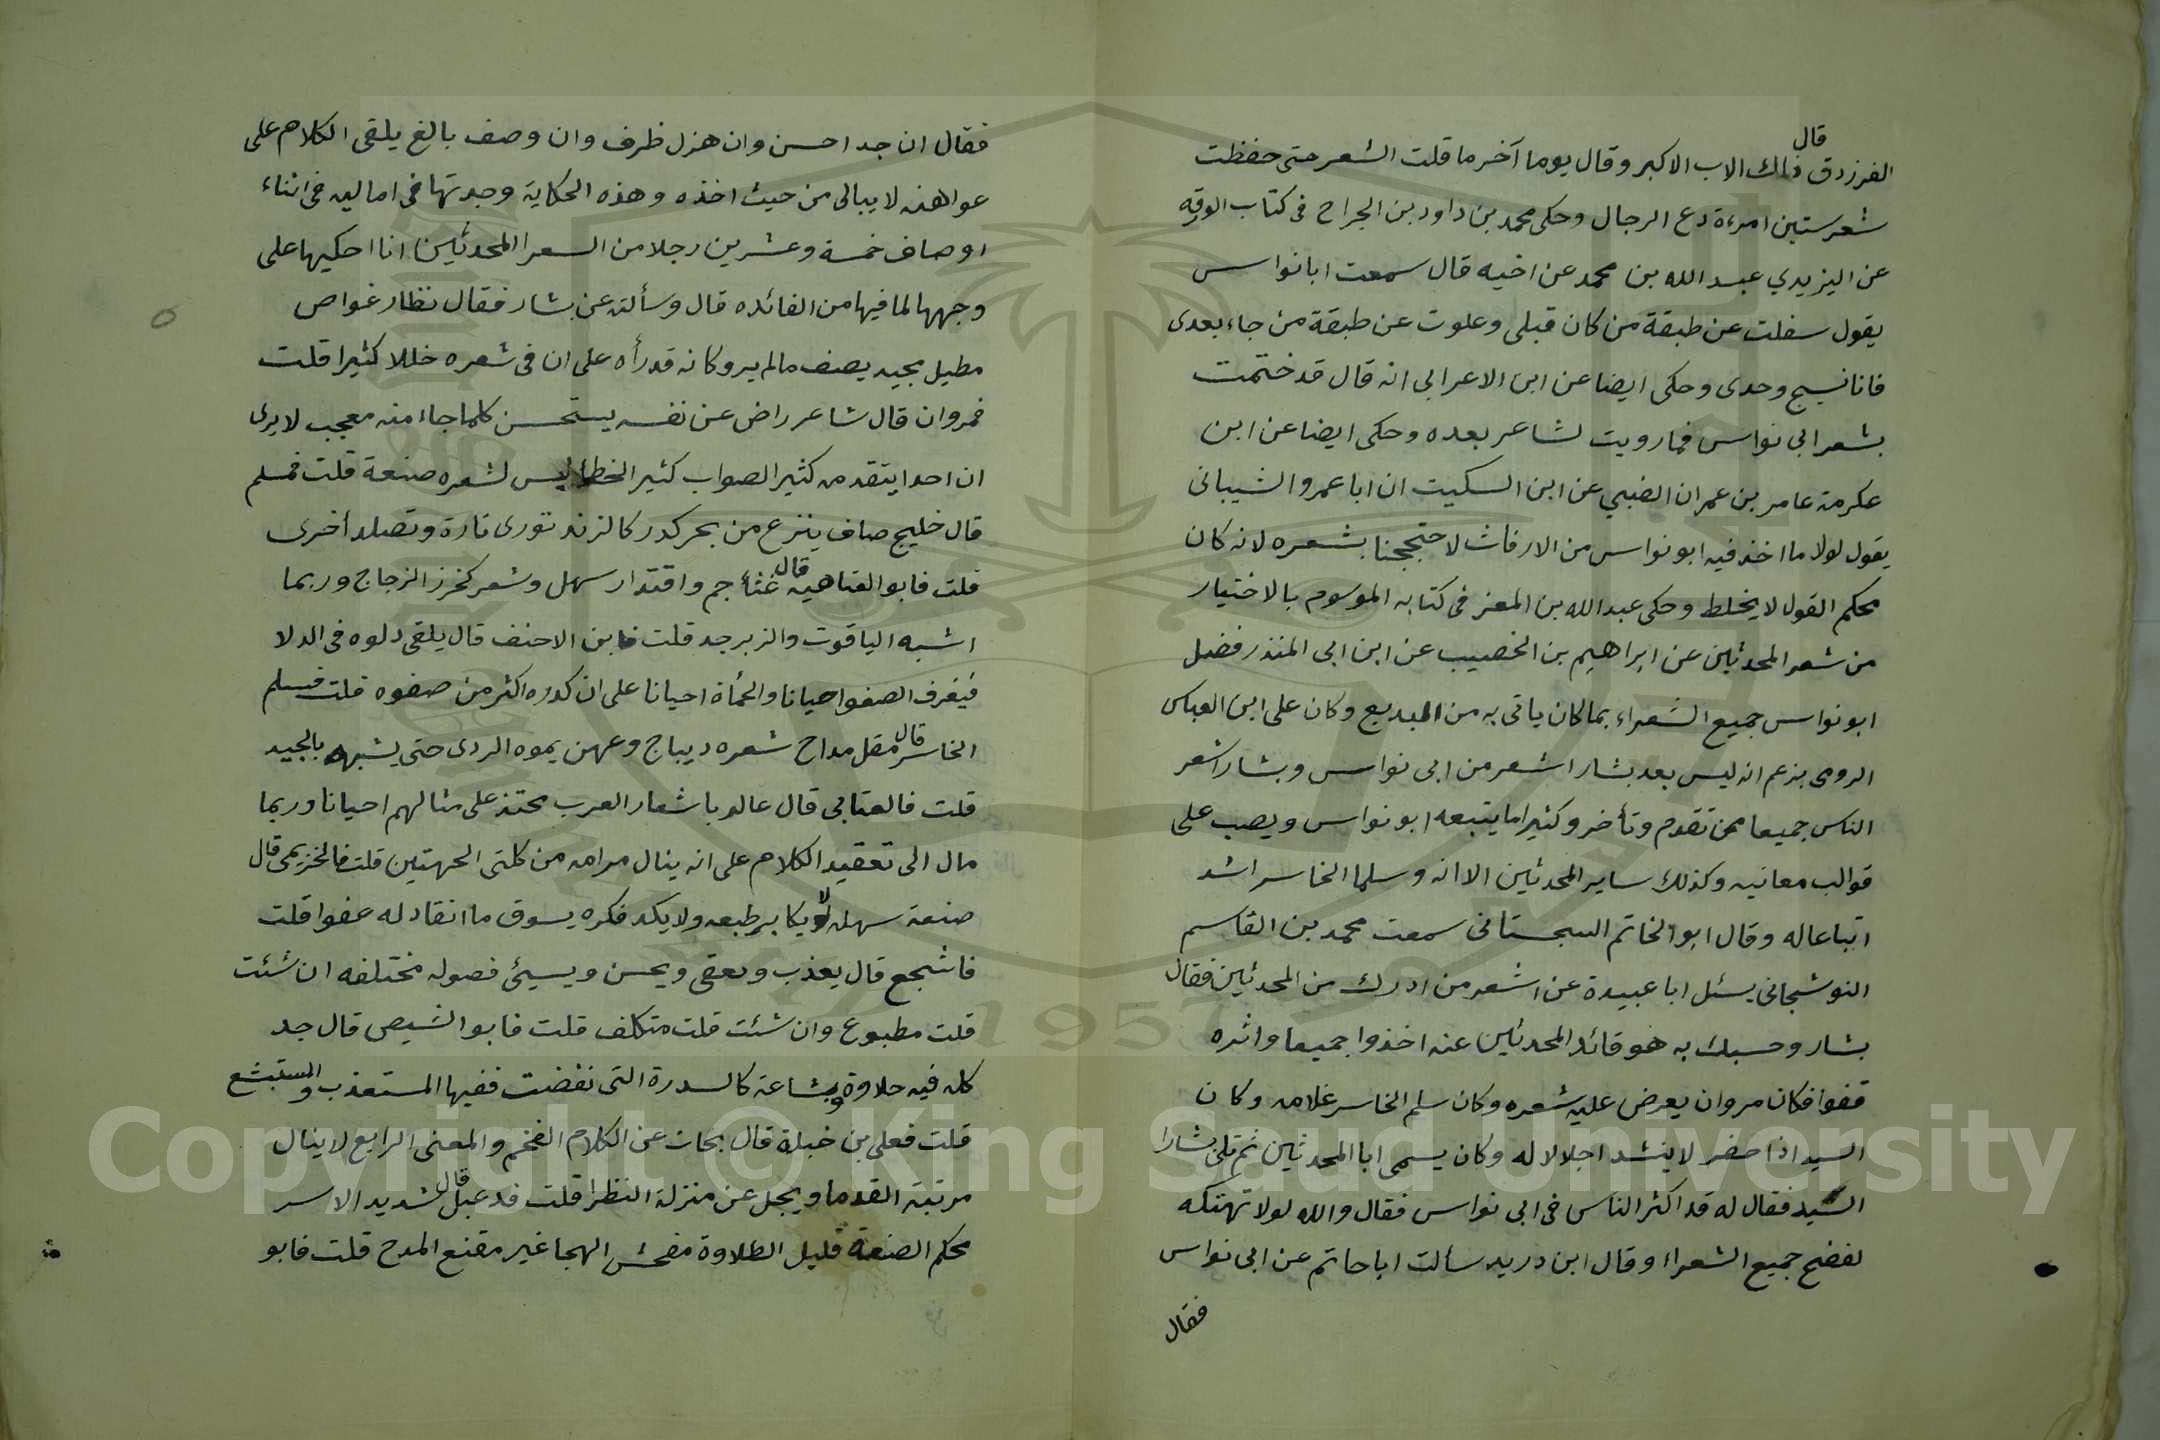 الفرزدق قال ذلك الاب الاكبر وقال يوما آخر ما قلت الشعر حتى حفظت
شعر ستين امرءة دع الرجال وحكى محمد بن داود بن الجراح فى كتاب الورقه
عن اليزيدي عبد الله بن محمد عن اخيه قال سمعت ابا نواس
يقول سفلت عن طبقة من كان قبلى وعلوت عن طبقة من جاء بعدى
فانا نسيج وحدى وحكى ايضا عن ابن الاعرابى انه قال قد ختمت
بشعر ابى نواس فما رويت لشاعر بعده وحكى ايضا عن ابن
عكرمة عامر بن عمران الضبي عن ابن السكيت ان ابا عمرو الشيبانى
يقول لولا ما اخذ فيه ابو نواس من الارفاث لاحتججنا بشعره لانه كان
محكم القول لا يخلط وحكى عبد الله بن المعز فى كتابه الموسوم بالاختيار
من شعر المحدثين عن ابراهيم بن الخصيب عن ابن ابى المنذر فضل
ابو نواس جميع الشعراء بما كان ياتى به من البديع وكان على ابن العباس
الرومى يزعم انه ليس بعد بشار اشعر من ابى نواس وبشار اشعر
الناس جميعا ممن تقدم وتأخر وكثيرا ما يتبعه ابو نواس ويصب على
قوالب معانيه وكذلك ساير المحدثين الا انه وسلما الخاسر اشد
اتباعا له وقال ابو الخاتم السجستانى سمعت محمد بن القاسم
النوشجانى يسئل ابا عبيدة عن اشعر من ادرك من المحدثين فقال
بشار وحسبك به هو قائد المحدثين عنه اخذوا جميعا واثره
قفوا فكان مروان يعرض عليه شعره وكان سلم الخاسر غلامه وكان
السيد اذا حضر لا ينشد اجلالا له وكان يسمى ابا المحدثين ثم تلى بشارا
السيد فقال له قد اكثر الناس فى ابى نواس فقال والله لولا تهتكه
لفضح جميع الشعراء وقال ابن دريد سألت ابا حاتم عن ابى نواس
فقال
فقال ان جد احسن وان هزل ظرف وان وصف بالغ يلقى الكلام على
عواهنه لا يبالى من حيث اخذه وهذه الحكاية وجدتها فى اماليه فى اثناء
اوصاف خمسة وعشرين رجلا من الشعرا المحدثين انا احكيها على
وجهها لما فيها من الفائده قال وسألته عن بشار فقال نظار غواص
مطيل مجيد يصف ما لم ير وكانه قد رأه على ان فى شعره خللا كثيرا قلت
فمروان قال شاعر راض عن نفسه يستحسن كلما جاء منه معجب لا يرى
ان احدا يتقدمه كثير الصواب كثير الخطأ ليس لشعره صنعة قلت فمسلم
قال خليج صاف ينزع من بحر كدر كالزند تورى تارة وتصلد أخرى
قلت فابو العتاهيه قال غثأ جم واقتدار سهل وشعر كخرز الزجاج وربما
اشبه الياقوت والزبرجد قلت فابن الاحنف قال يلقى دلوه فى الدلا
فيغرف الصفو احيانا والحمأة احيانا على ان كدره اكثر من صفوه قلت فسلم
الخاسر قال مقل مداح شعره ديباج وعهن يموه الردى حتى يشبهه بالجيد
قلت فالعتابى قال عالم باشعار العرب محتذ على مثالهم احيانا وربما
مال الى تعقيد الكلام على انه ينال مرامه من كلتى الجهتين قلت فالخزيمى قال
صنعة سهله لا يكابر طبعه ولا يكد فكره يسوق ما انقاد له عفوا قلت
فاشجع قال يعذب ويعقى ويحسن ويسيئ فصوله مختلفه ان شئت
قلت مطبوع وان شئت قلت متكلف قلت فابو الشيص قال جد
كله فيه حلاوة وبشاعة كالسدرة التى نفضت ففيها المستعذب والمستبشع
قلت فعلى بن خبلة قال بحاث عن الكلام الفخم والمعنى الرابع لا ينال
مرتبة القدما ويجل عن منزلة النظرا قلت فدعبل قال شديد الاسر
محكم الصنعة قليل الطلاوة مفحش الهجا غير مقنع المدح قلت فابو
Copyright © King Saud University
1957